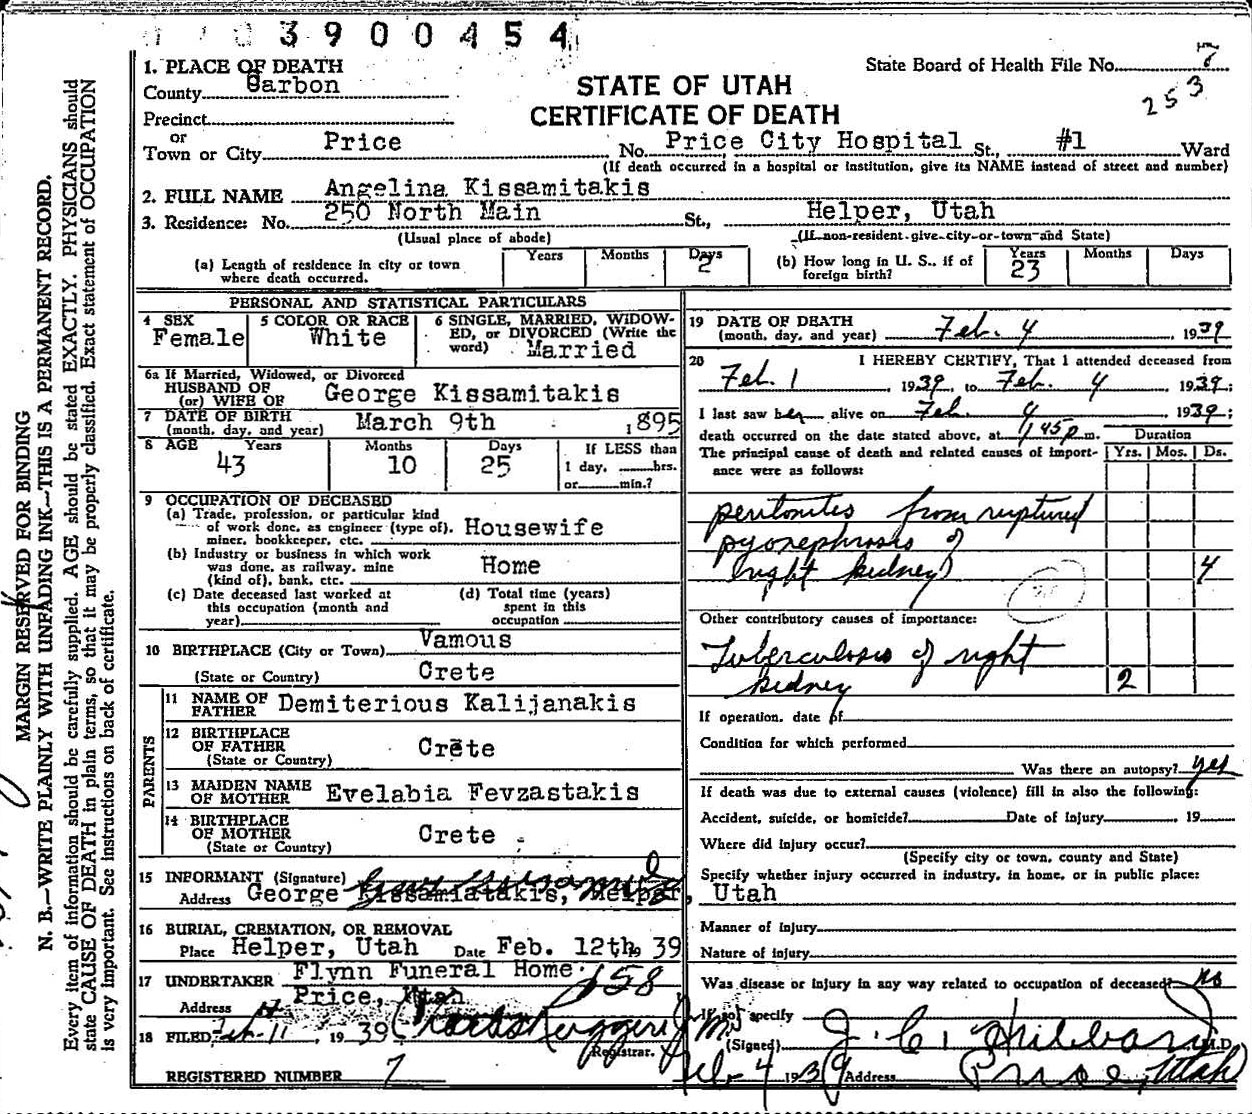 3900454
1. PLACE OF DEATH
County Carbon
STATE OF UTAH
CERTIFICATE OF DEATH
State Board of Health File No. 7
253
Precinct
or
Town or City Price No. Price City Hospital St., #1 Ward
(If death occurred in a hospital or institution, give its NAME instead of street and number)
2. FULL NAME Angelina Kissamitakis
3. Residence: No. 250 North Main St., Helper, Utah
(Usual place of abode) (If non-resident give city or town and State)
(a) Length of residence in city or town where death occurred. Years Months Days 2
(b) How long in U. S., if of foreign birth? Years 23 Months Days
PERSONAL AND STATISTICAL PARTICULARS
4 SEX Female
5 COLOR OR RACE White
6 SINGLE, MARRIED, WIDOWED, or DIVORCED (Write the word) Married
6a If Married, Widowed, or Divorced
HUSBAND OF
(or) WIFE OF George Kissamitakis
7 DATE OF BIRTH
(month, day, and year) March 9th 1895
8 AGE Years 43 Months 10 Days 25 If LESS than
1 day, hrs.
or min.?
9 OCCUPATION OF DECEASED
(a) Trade, profession, or particular kind
of work done, as engineer (type of),
miner, bookkeeper, etc. Housewife
(b) Industry or business in which work
was done, as railway, mine
(kind of), bank, etc. Home
(c) Date deceased last worked at
this occupation (month and
year)
(d) Total time (years)
spent in this
occupation
10 BIRTHPLACE (City or Town) Vamous
(State or Country) Crete
PARENTS
11 NAME OF
FATHER Demiterious Kalijanakis
12 BIRTHPLACE
OF FATHER
(State or Country) Crete
13 MAIDEN NAME
OF MOTHER Evelabia Fevzastakis
14 BIRTHPLACE
OF MOTHER
(State or Country) Crete
15 INFORMANT (Signature)
Address George Kissamiatakis, Helper, Utah
16 BURIAL, CREMATION, OR REMOVAL
Place Helper, Utah Date Feb. 12th 19 39
17 UNDERTAKER Flynn Funeral Home 158
Address Price, Utah
18 FILED Feb. 11, 1939
Registrar.
REGISTERED NUMBER 7
19 DATE OF DEATH
(month, day, and year) Feb. 4 1939
20 I HEREBY CERTIFY, That I attended deceased from
Feb. 1, 1939, to Feb. 4, 1939;
I last saw her alive on Feb. 4, 1939;
death occurred on the date stated above, at 1:45 p.m.
The principal cause of death and related causes of importance were as follows:
Duration
Yrs. Mos. Ds.
peritonites from ruptured
pyonephrosis of
(right kidney) 4
Other contributory causes of importance:
Tuberculosis of right
kidney 2
If operation, date of
Condition for which performed
Was there an autopsy? yes
If death was due to external causes (violence) fill in also the following:
Accident, suicide, or homicide? Date of Injury , 19
Where did injury occur?
(Specify city or town, county and State)
Specify whether injury occurred in industry, in home, or in public place:
Manner of injury
Nature of injury
Was disease or injury in any way related to occupation of deceased? No
If so, specify
(Signed) J. C. Hubbard M.D.
Feb 4 1939 Address Price, Utah
MARGIN RESERVED FOR BINDING
N. B.—WRITE PLAINLY WITH UNFADING INK—THIS IS A PERMANENT RECORD.
Every item of information should be carefully supplied. AGE should be stated EXACTLY. PHYSICIANS should
state CAUSE OF DEATH in plain terms, so that it may be properly classified. Exact statement of OCCUPATION
is very important. See instructions on back of certificate.